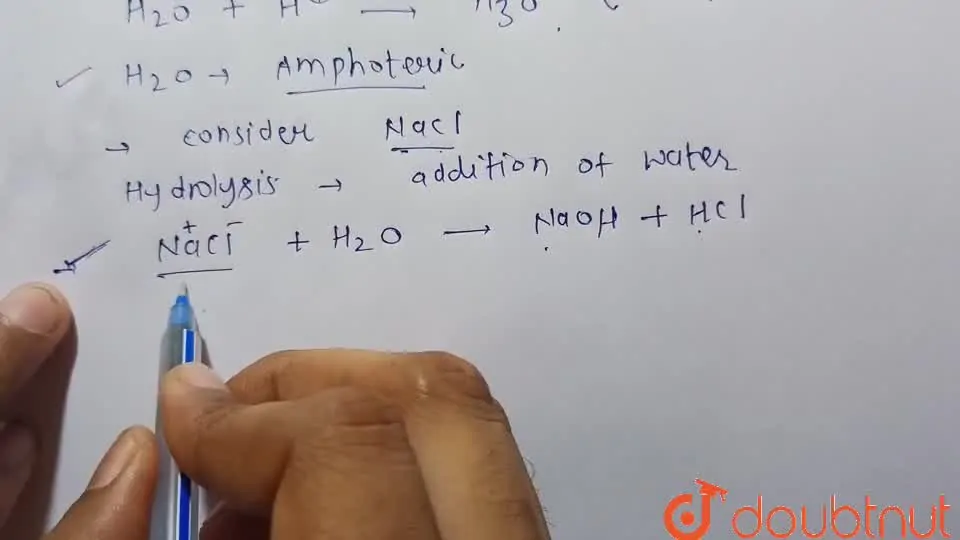 H2O + H+ → H3O
H2O → Amphoteric
→ consider NaCl
Hydrolysis → addition of water
Na+Cl- + H2O → NaOH + HCl
doubtnut